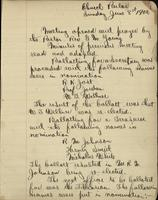 Church Parlors
Sunday June 8th 1902
Meeting opened and prayer by
the Pastor Rev
Minutes of previous meeting
read and adopted.
Balloting for a Secretary was
proceeded and the following names
were in nomination
R. R. Jost
Jordan
Wallace
The result of the ballot was that
Mr Wallace was so elected.
Balloting for a Treasurer
and the following names in
nomination
R. M. Johnson
Smith
Nicholas White
The ballot resulted in Mr R. M.
Johnson being so elected.
The next officer to be balloted
for was the Librarian. The following
names were in nomination